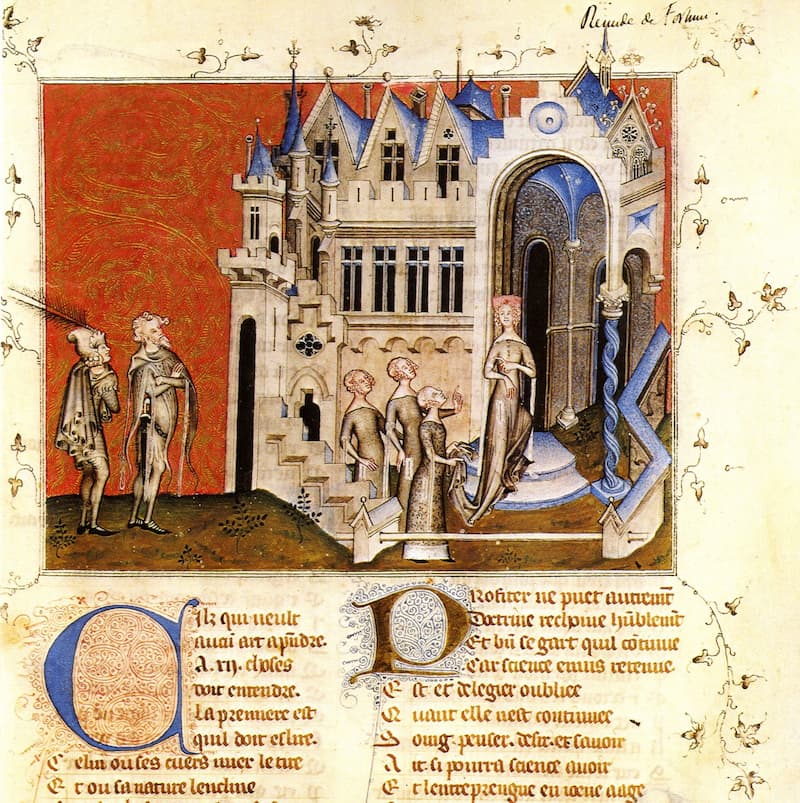 Remede de Fortune.
Cilz qui veult
aucun art apndre.
A .xii. choses
doit entendre.
La premiere est
quil doit eslire.
Celui ou ses cuers mier le tire
Et ou sa nature lencline
Profiter ne puet autremt
Doctrine resoiue hublement
Et bn se gart quil cotinue
Car science enuis retenue
Est et delegier oubliee
Quant elle nest continuee
Soing. penser. desir. et sauoir
Ait. si pourra science auoir
Et lentrepreugne en ioene aage